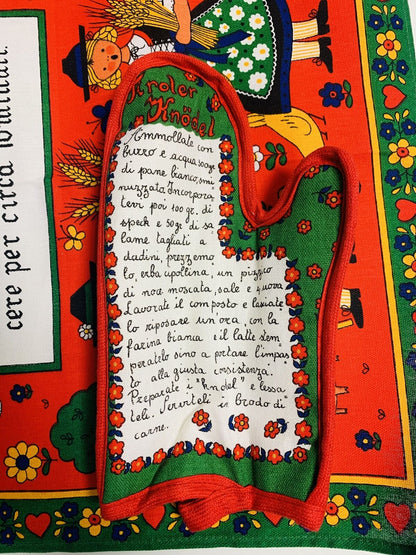 Tiroler
Knödel
Ammollate con
burro e acqua 300gr
di pane bianco, smi
nuzzato. Incorpora
tevi poi 100 gr. di
speck e 50gr. di sa
lame tagliati a
dadini, prezzemo
lo, erba cipollina, un pizzico
di noce moscata, sale e 4 uova.
Lavorate il composto e lasciate
lo riposare un'ora, con la
farina bianca e il latte stem
peratelo sino a portare l'impas
to alla giusta consistenza.
Preparate i "knödel" e lessa
teli. Serviteli in brodo di
carne.
cere per circa 10 minuti.